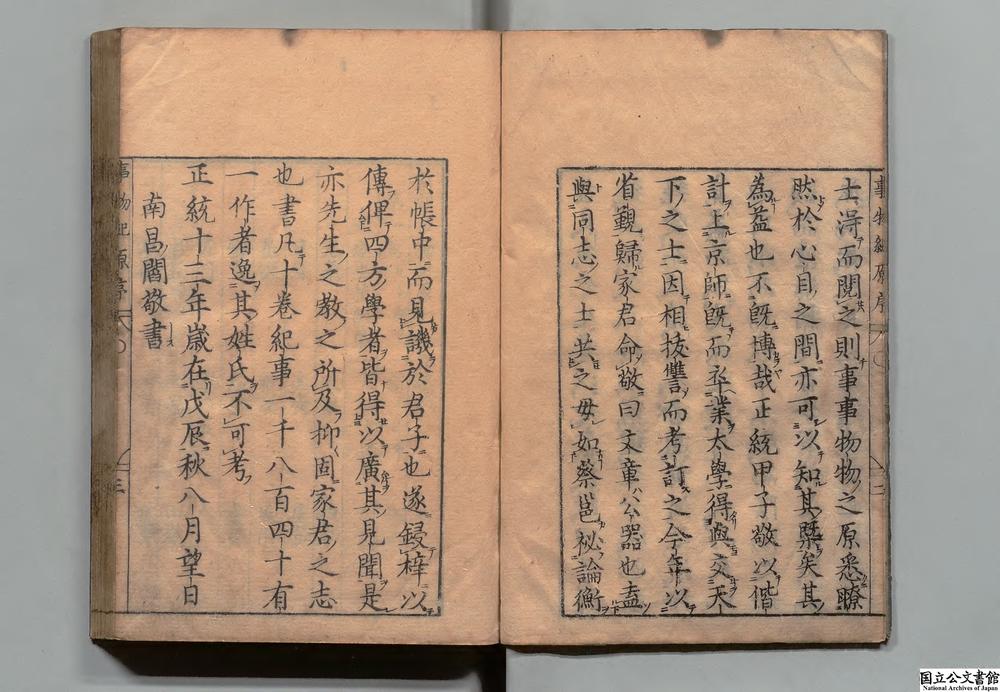 士得而閱之則事事物物之原悉瞭
然於心目之間亦可以知其槩矣其
為益也不既博哉正統甲子敬以偕
計上京師既而卒業太學得與交天
下之士因相挍讐而考訂之今年以
省覲歸家君命敬曰文章公器也盍
與同志之士共之毋如蔡邕祕論衡
於帳中而見譏於君子也遂鋟梓以
傳俾四方學者皆得以廣其見聞是
亦先生之教之所及抑固家君之志
也書凡十卷紀事一千八百四十有
一作者逸其姓氏不可考
正統十三年歲在戊辰秋八月望日
南昌閻敬書
国立公文書館
National Archives of Japan